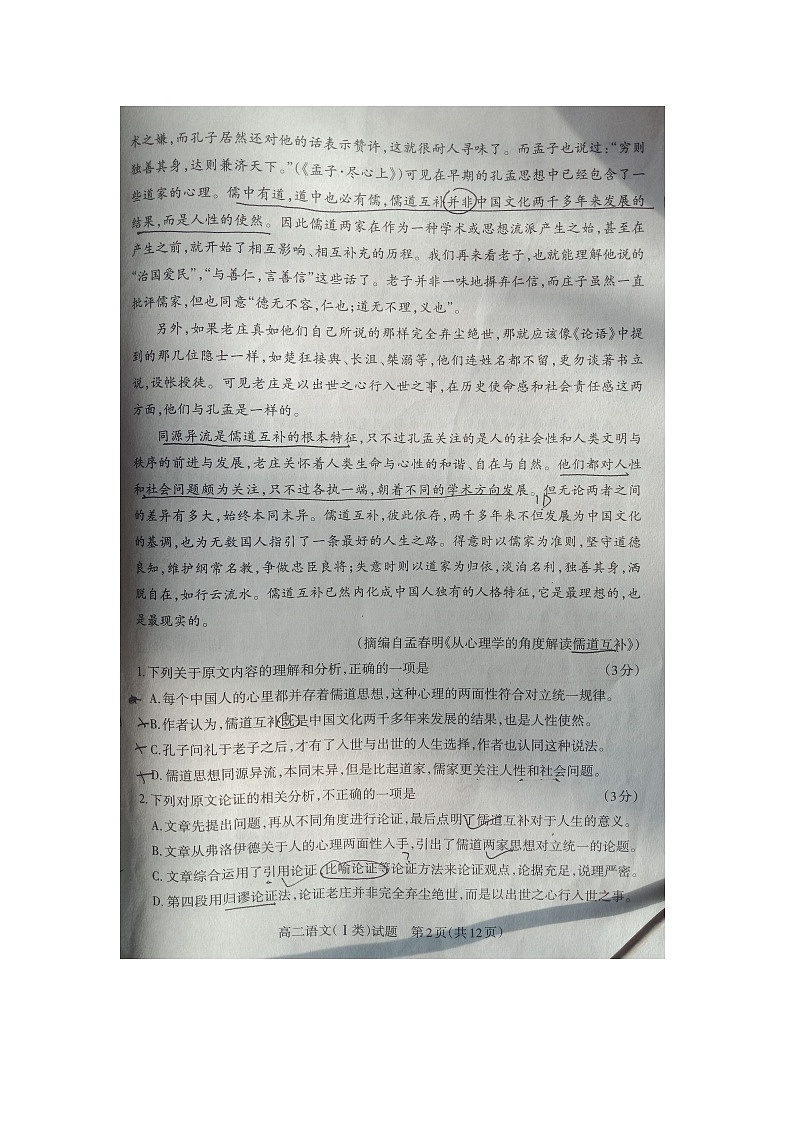 术之嫌,而孔子居然还对他的话表示赞许,这就很耐人寻味了。而孟子也说过:“穷则
独善其身,达则兼济天下。”(《孟子·尽心上》)可见在早期的孔孟思想中已经包含了一
些道家的心理。儒中有道,道中也必有儒,儒道互补并非中国文化两千多年来发展的
结果,而是人性的使然。因此儒道两家在作为一种学术或思想流派产生之始,甚至在
产生之前,就开始了相互影响、相互补充的历程。我们再来看老子,也就能理解他说的
“治国爱民”,“与善仁,言善信”这些话了。老子并非一味地摒弃仁信,而庄子虽然一直
批评儒家,但也同意“德无不容,仁也;道无不理,义也”。
另外,如果老庄真如他们自己所说的那样完全弃尘绝世,那就应该像《论语》中提
到的那几位隐士一样,如楚狂接舆、长沮、桀溺等,他们连姓名都不留,更勿谈著书立
说,设帐授徒。可见老庄是以出世之心行入世之事,在历史使命感和社会责任感这两
方面,他们与孔孟是一样的。
同源异流是儒道互补的根本特征,只不过孔孟关注的是人的社会性和人类文明与
秩序的前进与发展,老庄关怀着人类生命与心性的和谐、自在与自然。他们都对人性
和社会问题颇为关注,只不过各执一端,朝着不同的学术方向发展。但无论两者之间
的差异有多大,始终本同末异。儒道互补,彼此依存,两千多年来不但发展为中国文化
的基调,也为无数国人指引了一条最好的人生之路。得意时以儒家为准则,坚守道德
良知,维护纲常名教,争做忠臣良将;失意时则以道家为归依,淡泊名利,独善其身,洒
脱自在,如行云流水。儒道互补已然内化成中国人独有的人格特征,它是最理想的,也
是最现实的。
(摘编自孟春明《从心理学的角度解读儒道互补》)
1.下列关于原文内容的理解和分析,正确的一项是 (3分)
A.每个中国人的心里都并存着儒道思想,这种心理的两面性符合对立统一规律。
B.作者认为,儒道互补既是中国文化两千多年来发展的结果,也是人性使然。
C.孔子问礼于老子之后,才有了入世与出世的人生选择,作者也认同这种说法。
D.儒道思想同源异流,本同末异,但是比起道家,儒家更关注人性和社会问题。
2.下列对原文论证的相关分析,不正确的一项是 (3分)
A.文章先提出问题,再从不同角度进行论证,最后点明了儒道互补对于人生的意义。
B.文章从弗洛伊德关于人的心理两面性入手,引出了儒道两家思想对立统一的论题。
C.文章综合运用了引用论证、比喻论证等论证方法来论证观点,论据充足,说理严密。
D.第四段用归谬论证法,论证老庄并非完全弃尘绝世,而是以出世之心行入世之事。
高二语文(Ⅰ类)试题 第2页(共12页)